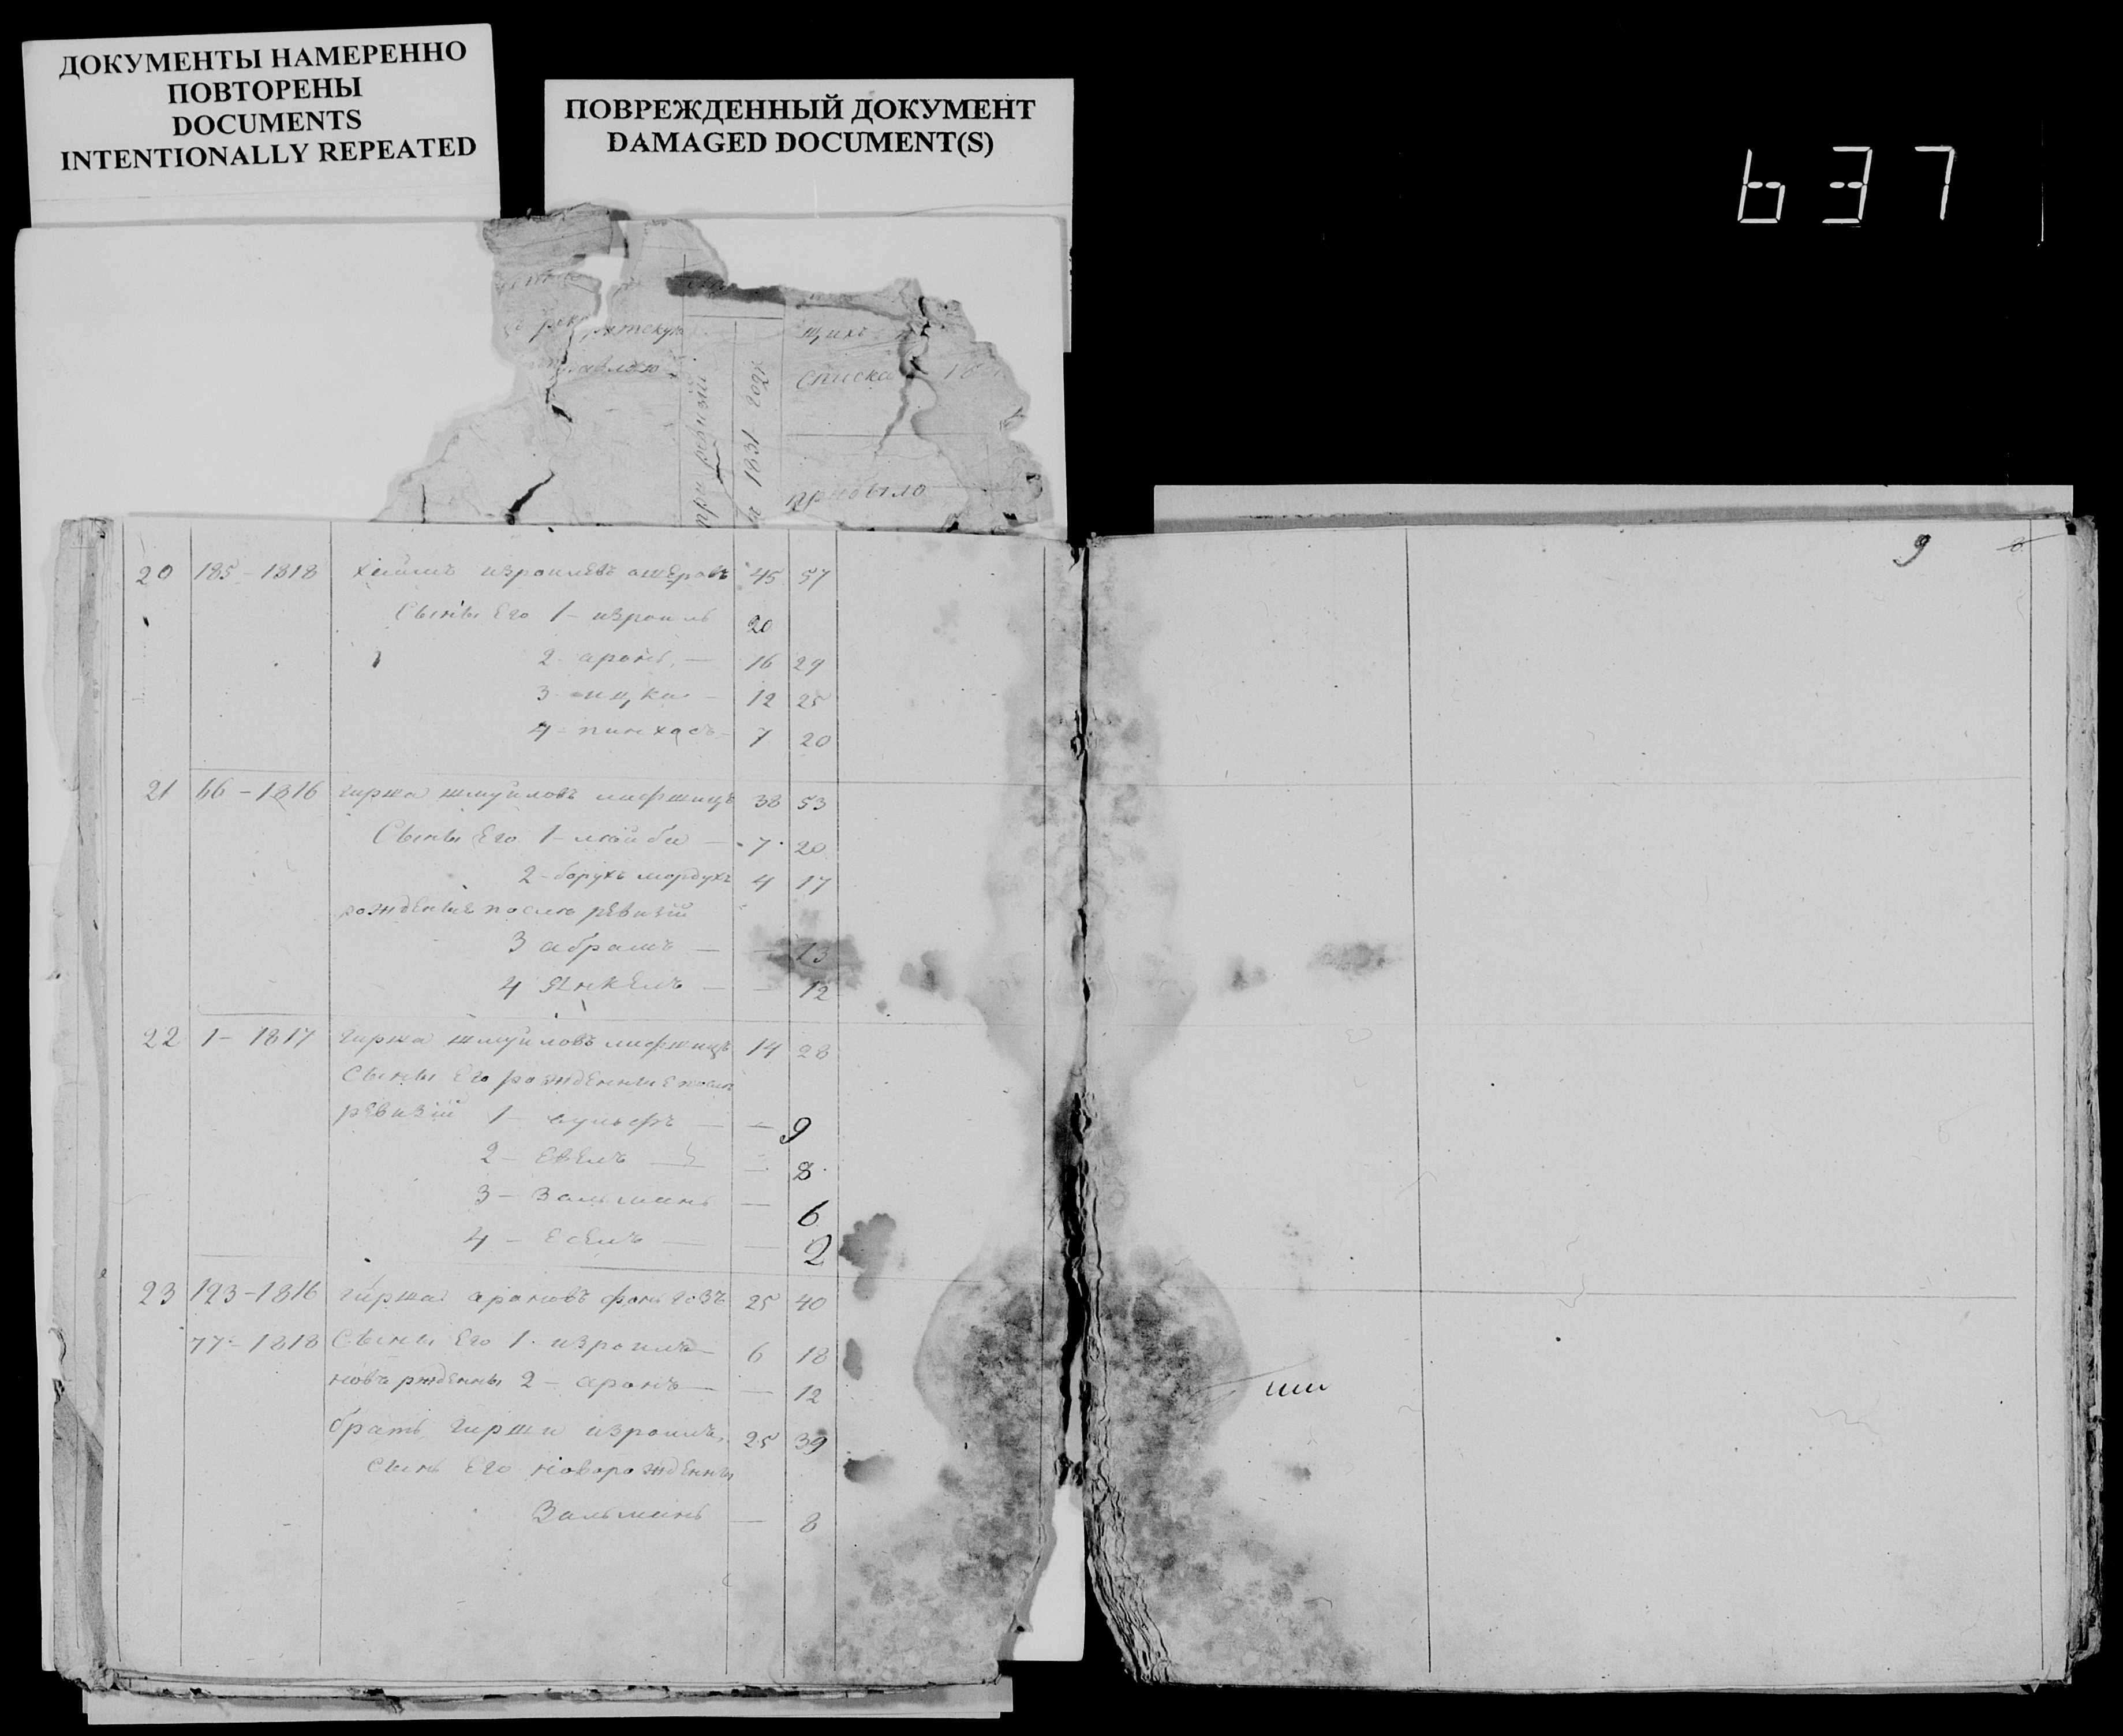 ДОКУМЕНТЫ НАМЕРЕННО
ПОВТОРЕНЫ
DOCUMENTS
INTENTIONALLY REPEATED
ПОВРЕЖДЕННЫЙ ДОКУМЕНТ
DAMAGED DOCUMENT(S)
637
щихъ
списка
при ревизіи
1831 году
прибыло
9
20 185-1818 хаимъ израилевъ ошеровъ 45 57
Сыны Его 1- израиль 20
2 аронъ - 16 29
3 ицка - 12 25
4- пинхасъ- 7 20
21 66-1816 гирша шмуиловъ лифшицъ 38 53
Сыны Его 1- лейба - 7 20
2- борухъ мордухъ 4 17
рожденые после ревизіи
3 абрамъ - - 13
4 Янкель - - 12
22 1-1817 гирша шмуиловъ лифшицъ 14 28
Сыны Его рожденные после
ревизіи 1- вульфъ - - 9
2- Евель - - 8
3- Зальманъ - 6
4- Есель - - 2
23 193-1816 гирша ароновъ 25 40
77-1818 Сыны Его 1. израиль 6 18
2- аронъ - - 12
братъ гирши израиль 25 39
сынъ Его новорожденны
Зальманъ - 8